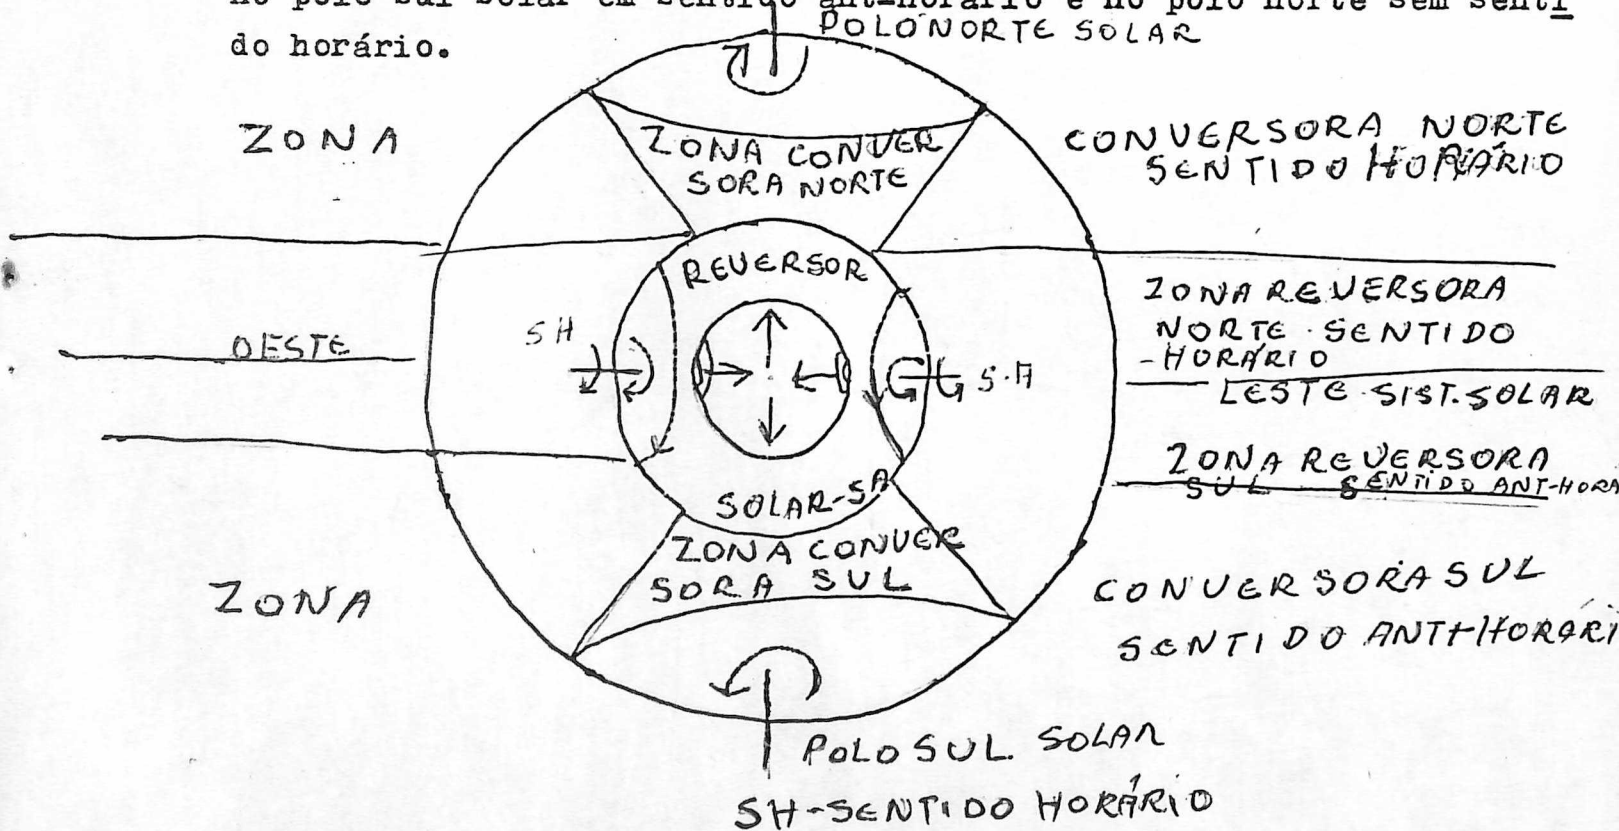 no polo sul solar em sentido ant-horário e no polo norte sem senti
do horário.
POLO NORTE SOLAR
ZONA
ZONA CONVER
SORA NORTE
CONVERSORA NORTE
SENTIDO HORÁRIO
REVERSOR
ZONA REVERSORA
NORTE SENTIDO
-HORÁRIO
SH
OESTE
S.A
LESTE SIST. SOLAR
ZONA REVERSORA
SUL SENTIDO ANT-HORA
SOLAR-SA
ZONA CONVER
SORA SUL
ZONA
CONVERSORA SUL
SENTIDO ANT-HORÁRI
POLO SUL SOLAR
SH-SENTIDO HORÁRIO